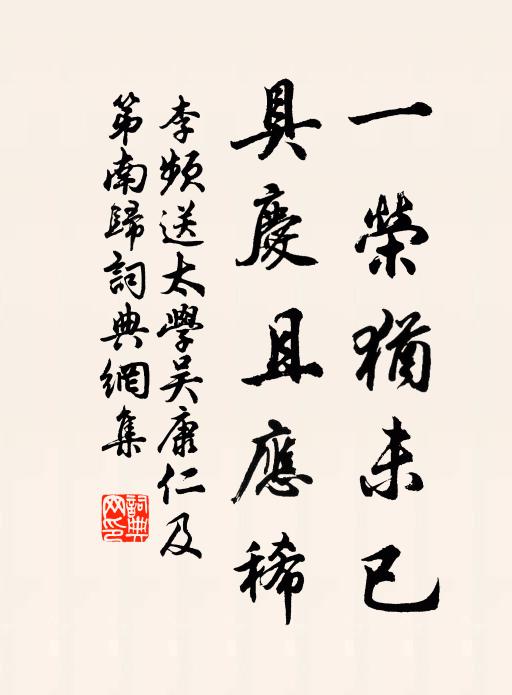 一榮猶未已
具慶且應稀
李頻送太學吴康仁及
第南歸詞典網集
詞典網印